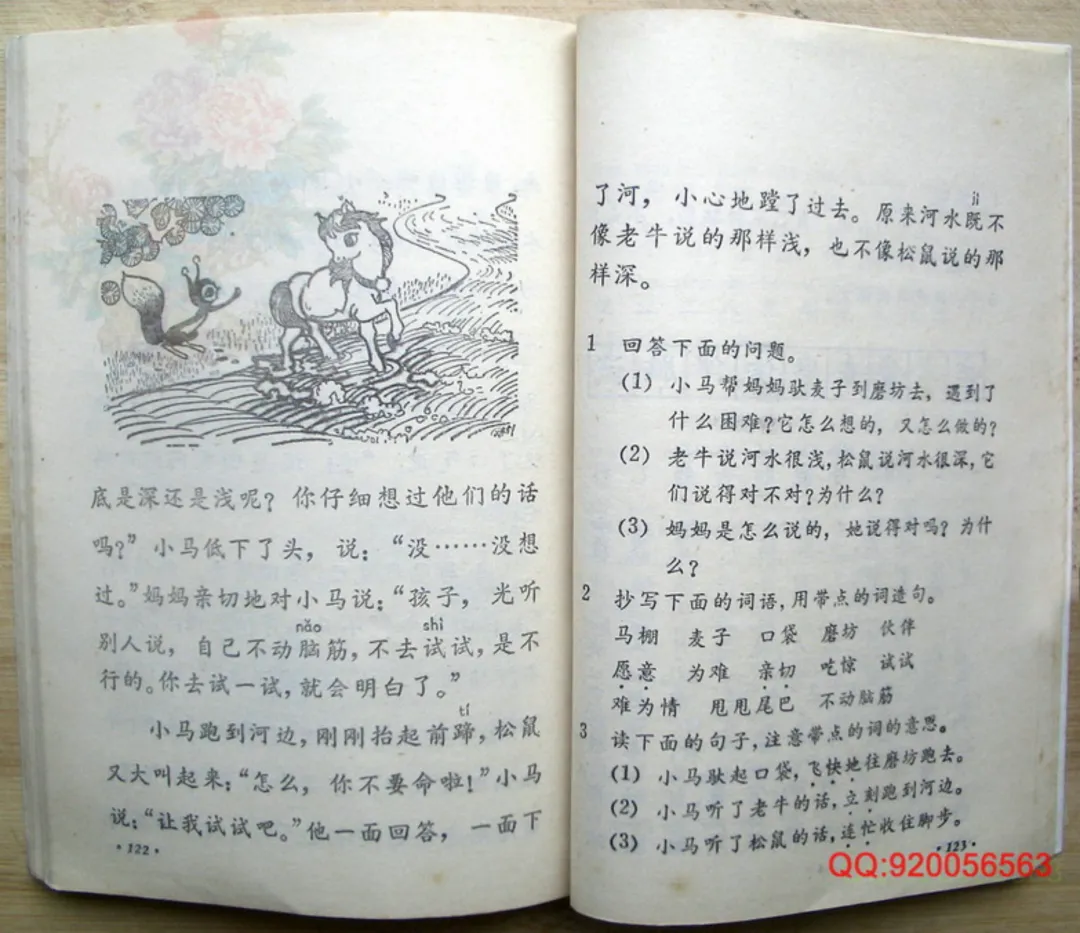 底是深还是浅呢？你仔细想过他们的话
吗？”小马低下了头，说：“没……没想
过。”妈妈亲切地对小马说：“孩子，光听
nǎo shì
别人说，自己不动脑筋，不去试试，是不
行的。你去试一试，就会明白了。”
tí
小马跑到河边，刚刚抬起前蹄，松鼠
又大叫起来：“怎么，你不要命啦！”小马
说：“让我试试吧。”他一面回答，一面下
·122·
jì
了河，小心地蹚了过去。原来河水既不
像老牛说的那样浅，也不像松鼠说的那
样深。
1 回答下面的问题。
(1) 小马帮妈妈驮麦子到磨坊去，遇到了
什么困难？它怎么想的，又怎么做的？
(2) 老牛说河水很浅，松鼠说河水很深，它
们说得对不对？为什么？
(3) 妈妈是怎么说的，她说得对吗？为什
么？
2 抄写下面的词语，用带点的词造句。
马棚 麦子 口袋 磨坊 伙伴
愿意 为难 亲切 吃惊 试试
难为情 甩甩尾巴 不动脑筋
3 读下面的句子，注意带点的词的意思。
(1) 小马驮起口袋，飞快地往磨坊跑去。
(2) 小马听了老牛的话，立刻跑到河边。
(3) 小马听了松鼠的话，连忙收住脚步。
·123·
QQ:920056563